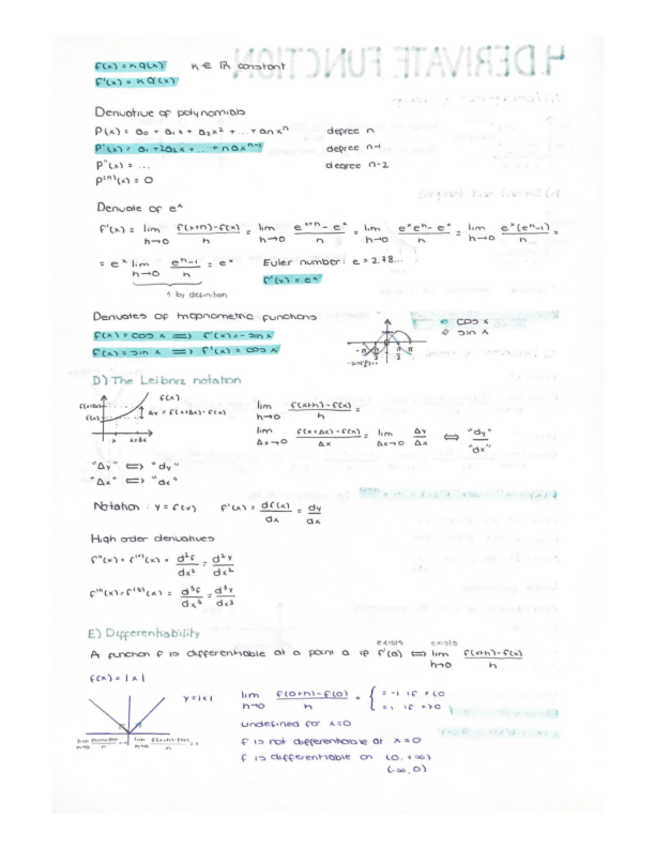 f(x) = k g(x)   k ∈ ℝ constant
f'(x) = k g'(x)
Derivative of polynomials
P(x) = a₀ + a₁x + a₂x² + ... + anxⁿ   degree n
P'(x) = a₁ + 2a₂x + ... + naxⁿ⁻¹   degree n-1
P''(x) = ...   degree n-2
p⁽ⁿ⁾(x) = 0
Derivate of eˣ
f'(x) = lim h→0 f(x+h)-f(x) / h = lim h→0 eˣ⁺ʰ - eˣ / h = lim h→0 eˣeʰ - eˣ / h = lim h→0 eˣ(eʰ-1) / h =
= eˣ lim h→0 eʰ-1 / h = eˣ   Euler number: e = 2.78...
f'(x) = eˣ
1 by definition
Derivates of trigonometric functions
f(x) = cos x ⟹ f'(x) = - sin x
f(x) = sin x ⟹ f'(x) = cos x
cos x
sin x
D) The Leibniz notation
f(x)
f(x+Δx)
f(x)
Δy = f(x+Δx) - f(x)
x   x+Δx
lim h→0 f(x+h)-f(x) / h =
lim Δx→0 f(x+Δx)-f(x) / Δx = lim Δx→0 Δy / Δx ⟺ "dy" / "dx"
"Δy" ⟺ "dy"
"Δx" ⟺ "dx"
Notation : y = f(x)   f'(x) = df(x) / dx = dy / dx
High order derivatives
f''(x) = f⁽²⁾(x) = d²f / dx² = d²y / dx²
f'''(x) = f⁽³⁾(x) = d³f / dx³ = d³y / dx³
E) Differentiability
exists   exists
A function f is differentiable at a point a if f'(a) ⟺ lim h→0 f(x+h)-f(x) / h
f(x) = |x|
y = |x|
lim h→0 f(0+h)-f(0) / h = { = -1 if x<0
= 1 if x>0
undefined for x=0
f is not differentiable at x=0
f is differentiable on (0, +∞)
(-∞, 0)
4. DERIVATE FUNCTION